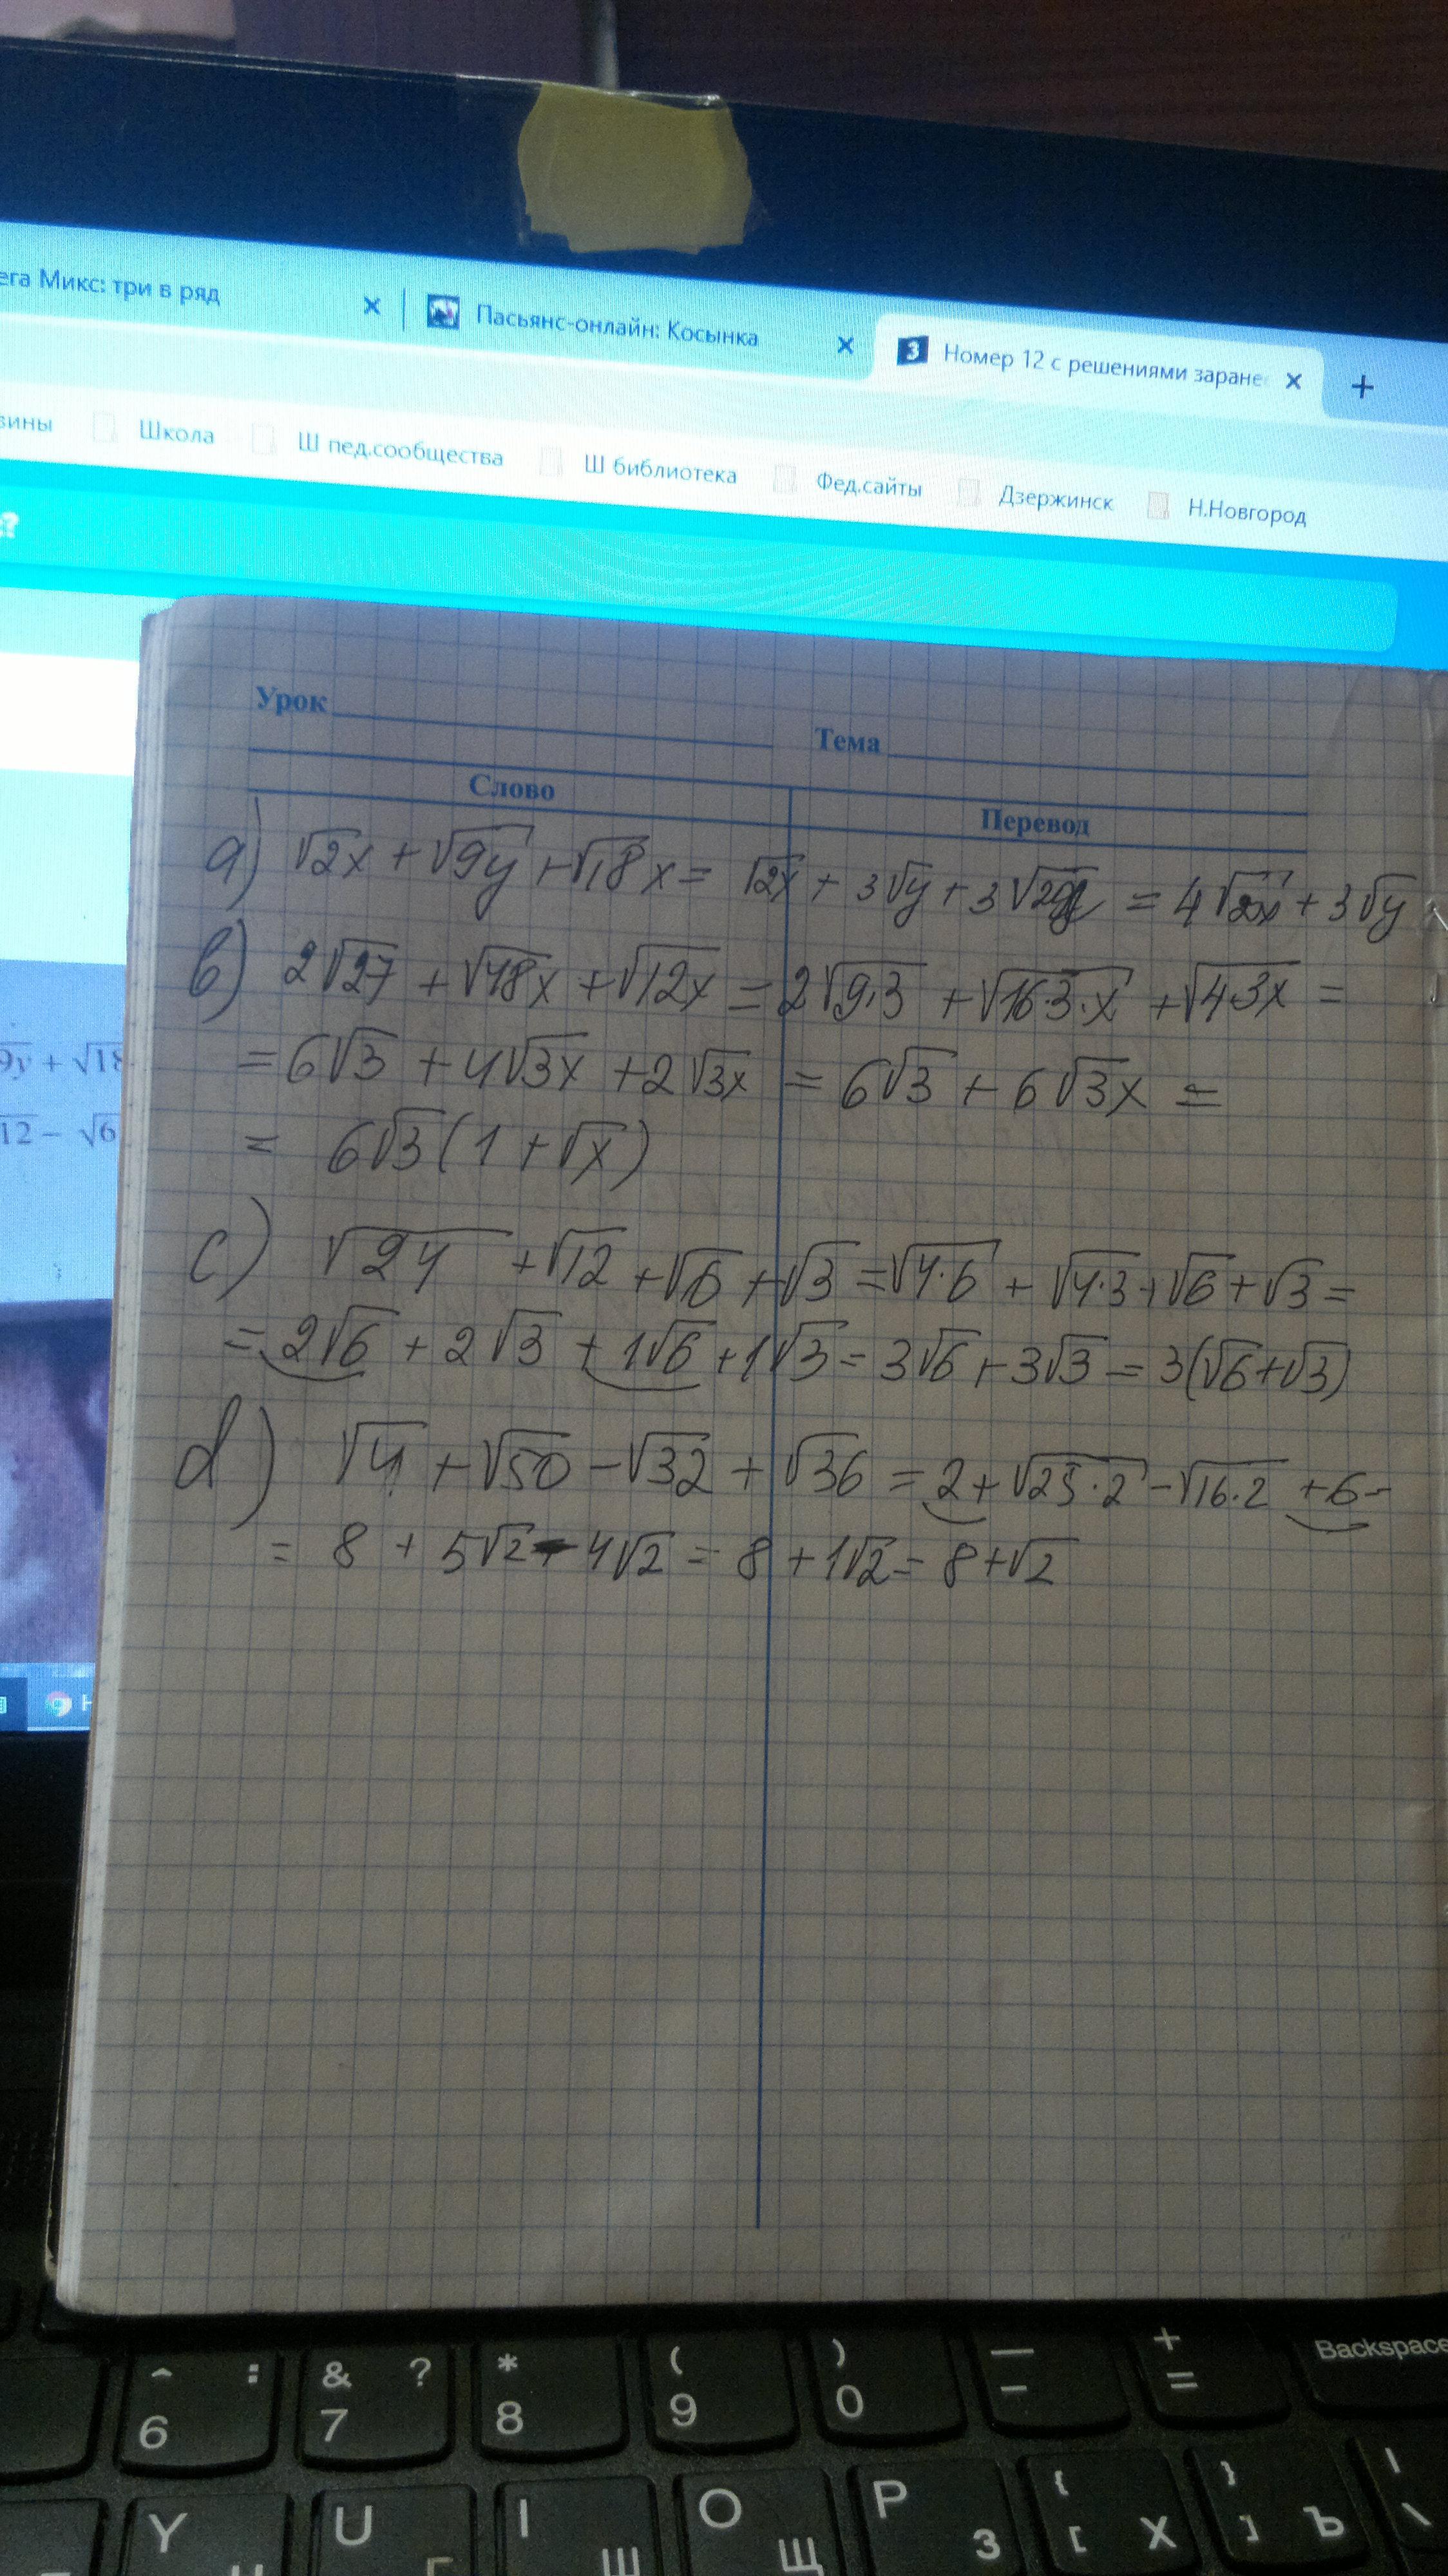 ега Микс: три в ряд
Пасьянс-онлайн: Косынка
Номер 12 с решениями заране
Школа
Ш пед.сообщества
Ш библиотека
Фед.сайты
Дзержинск
Н.Новгород
?
Урок
Тема
Слово
Перевод
a) √2x + √9y + √18x = √2x + 3√y + 3√2x = 4√2x + 3√y
b) 2√27 + √48x + √12x = 2√9·3 + √16·3·x + √4·3x =
= 6√3 + 4√3x + 2√3x = 6√3 + 6√3x =
= 6√3(1 + √x)
c) √24 + √12 + √6 + √3 = √4·6 + √4·3 + √6 + √3 =
= 2√6 + 2√3 + 1√6 + 1√3 = 3√6 + 3√3 = 3(√6+√3)
d) √4 + √50 - √32 + √36 = 2 + √25·2 - √16·2 + 6 =
= 8 + 5√2 - 4√2 = 8 + 1√2 = 8 + √2
9y + √18
12 - √6
^ : 6
& ? 7
* 8
( 9
) 0
— -
+ =
Backspace
Y
U
I Ш
O Щ
P З
{ [ Х
} ] Ъ
| \